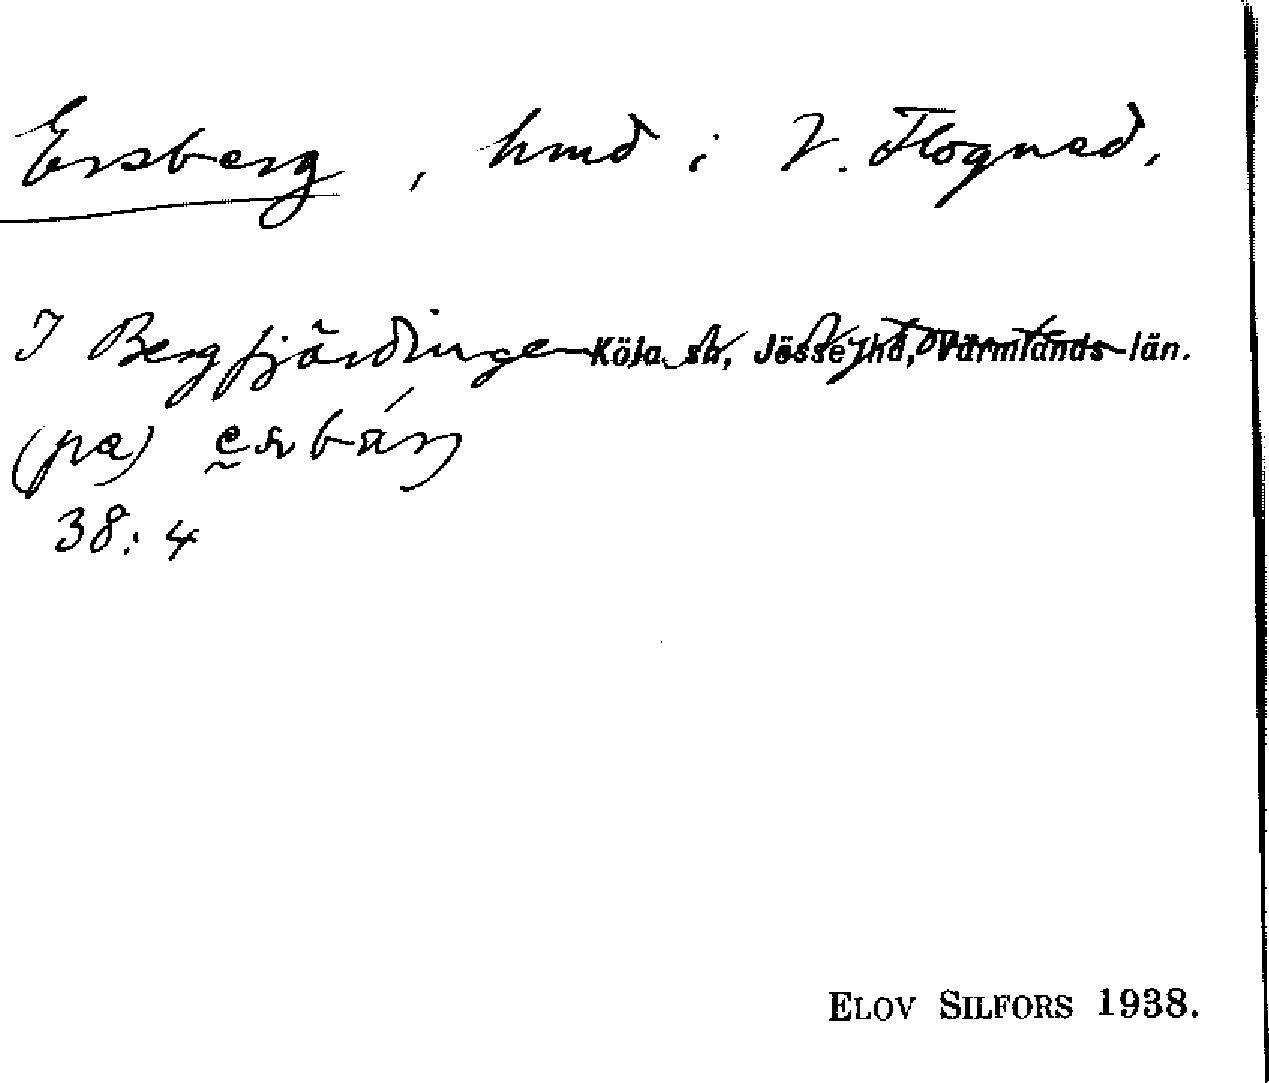 Ersberg, hmd i V. Flogned.
I Bergfjärdingen Köla sn, Jösse hd, Värmlands län.
(pa)
38:4
ELOV SILFORS 1938.